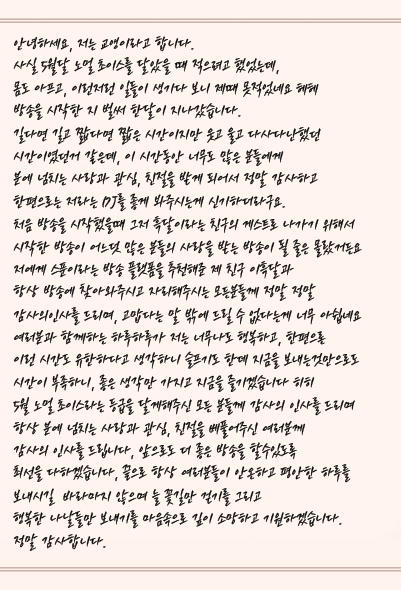 안녕하세요, 저는 교앵이라고 합니다.
사실 5월달 노멀 초이스를 달았을 때 적으려고 했었는데,
몸도 아프고, 이런저런 일들이 생기다 보니 제때 못적었네요 헤헤
방송을 시작한 지 벌써 한달이 지나갔습니다.
길다면 길고 짧다면 짧은 시간이지만 웃고 울고 다사다난했던
시간이였던거 같은데, 이 시간동안 너무도 많은 분들에게
분에 넘치는 사랑과 관심, 친절을 받게 되어서 정말 감사하고
한편으로는 저라는 DJ를 좋게 봐주시는게 신기하더라구요.
처음 방송을 시작했을때 그저 흑달이라는 친구의 게스트로 나가기 위해서
시작한 방송이 어느덧 많은 분들의 사랑을 받는 방송이 될 줄은 몰랐거든요
저에게 스푼이라는 방송 플랫폼을 추천해준 제 친구 이흑달과
항상 방송에 찾아와주시고 자리해주시는 모든분들께 정말 정말
감사의인사를 드리며, 고맙다는 말 밖에 드릴 수 없다는게 너무 아쉽네요
여러분과 함께하는 하루하루가 저는 너무나도 행복하고, 한편으론
이런 시간도 유한하다고 생각하니 슬프기도 한데 지금을 보내는것만으로도
시간이 부족하니, 좋은 생각만 가지고 지금을 즐기겠습니다 히히
5월 노멀 초이스라는 등급을 달게해주신 모든 분들께 감사의 인사를 드리며
항상 분에 넘치는 사랑과 관심, 친절을 베풀어주신 여러분께
감사의 인사를 드립니다, 앞으로도 더 좋은 방송을 할수있도록
최선을 다하겠습니다, 끝으로 항상 여러분들이 안온하고 평안한 하루를
보내시길 바라마지 않으며 늘 꽃길만 걷기를 그리고
행복한 나날들만 보내기를 마음속으로 깊이 소망하고 기원하겠습니다.
정말 감사합니다.